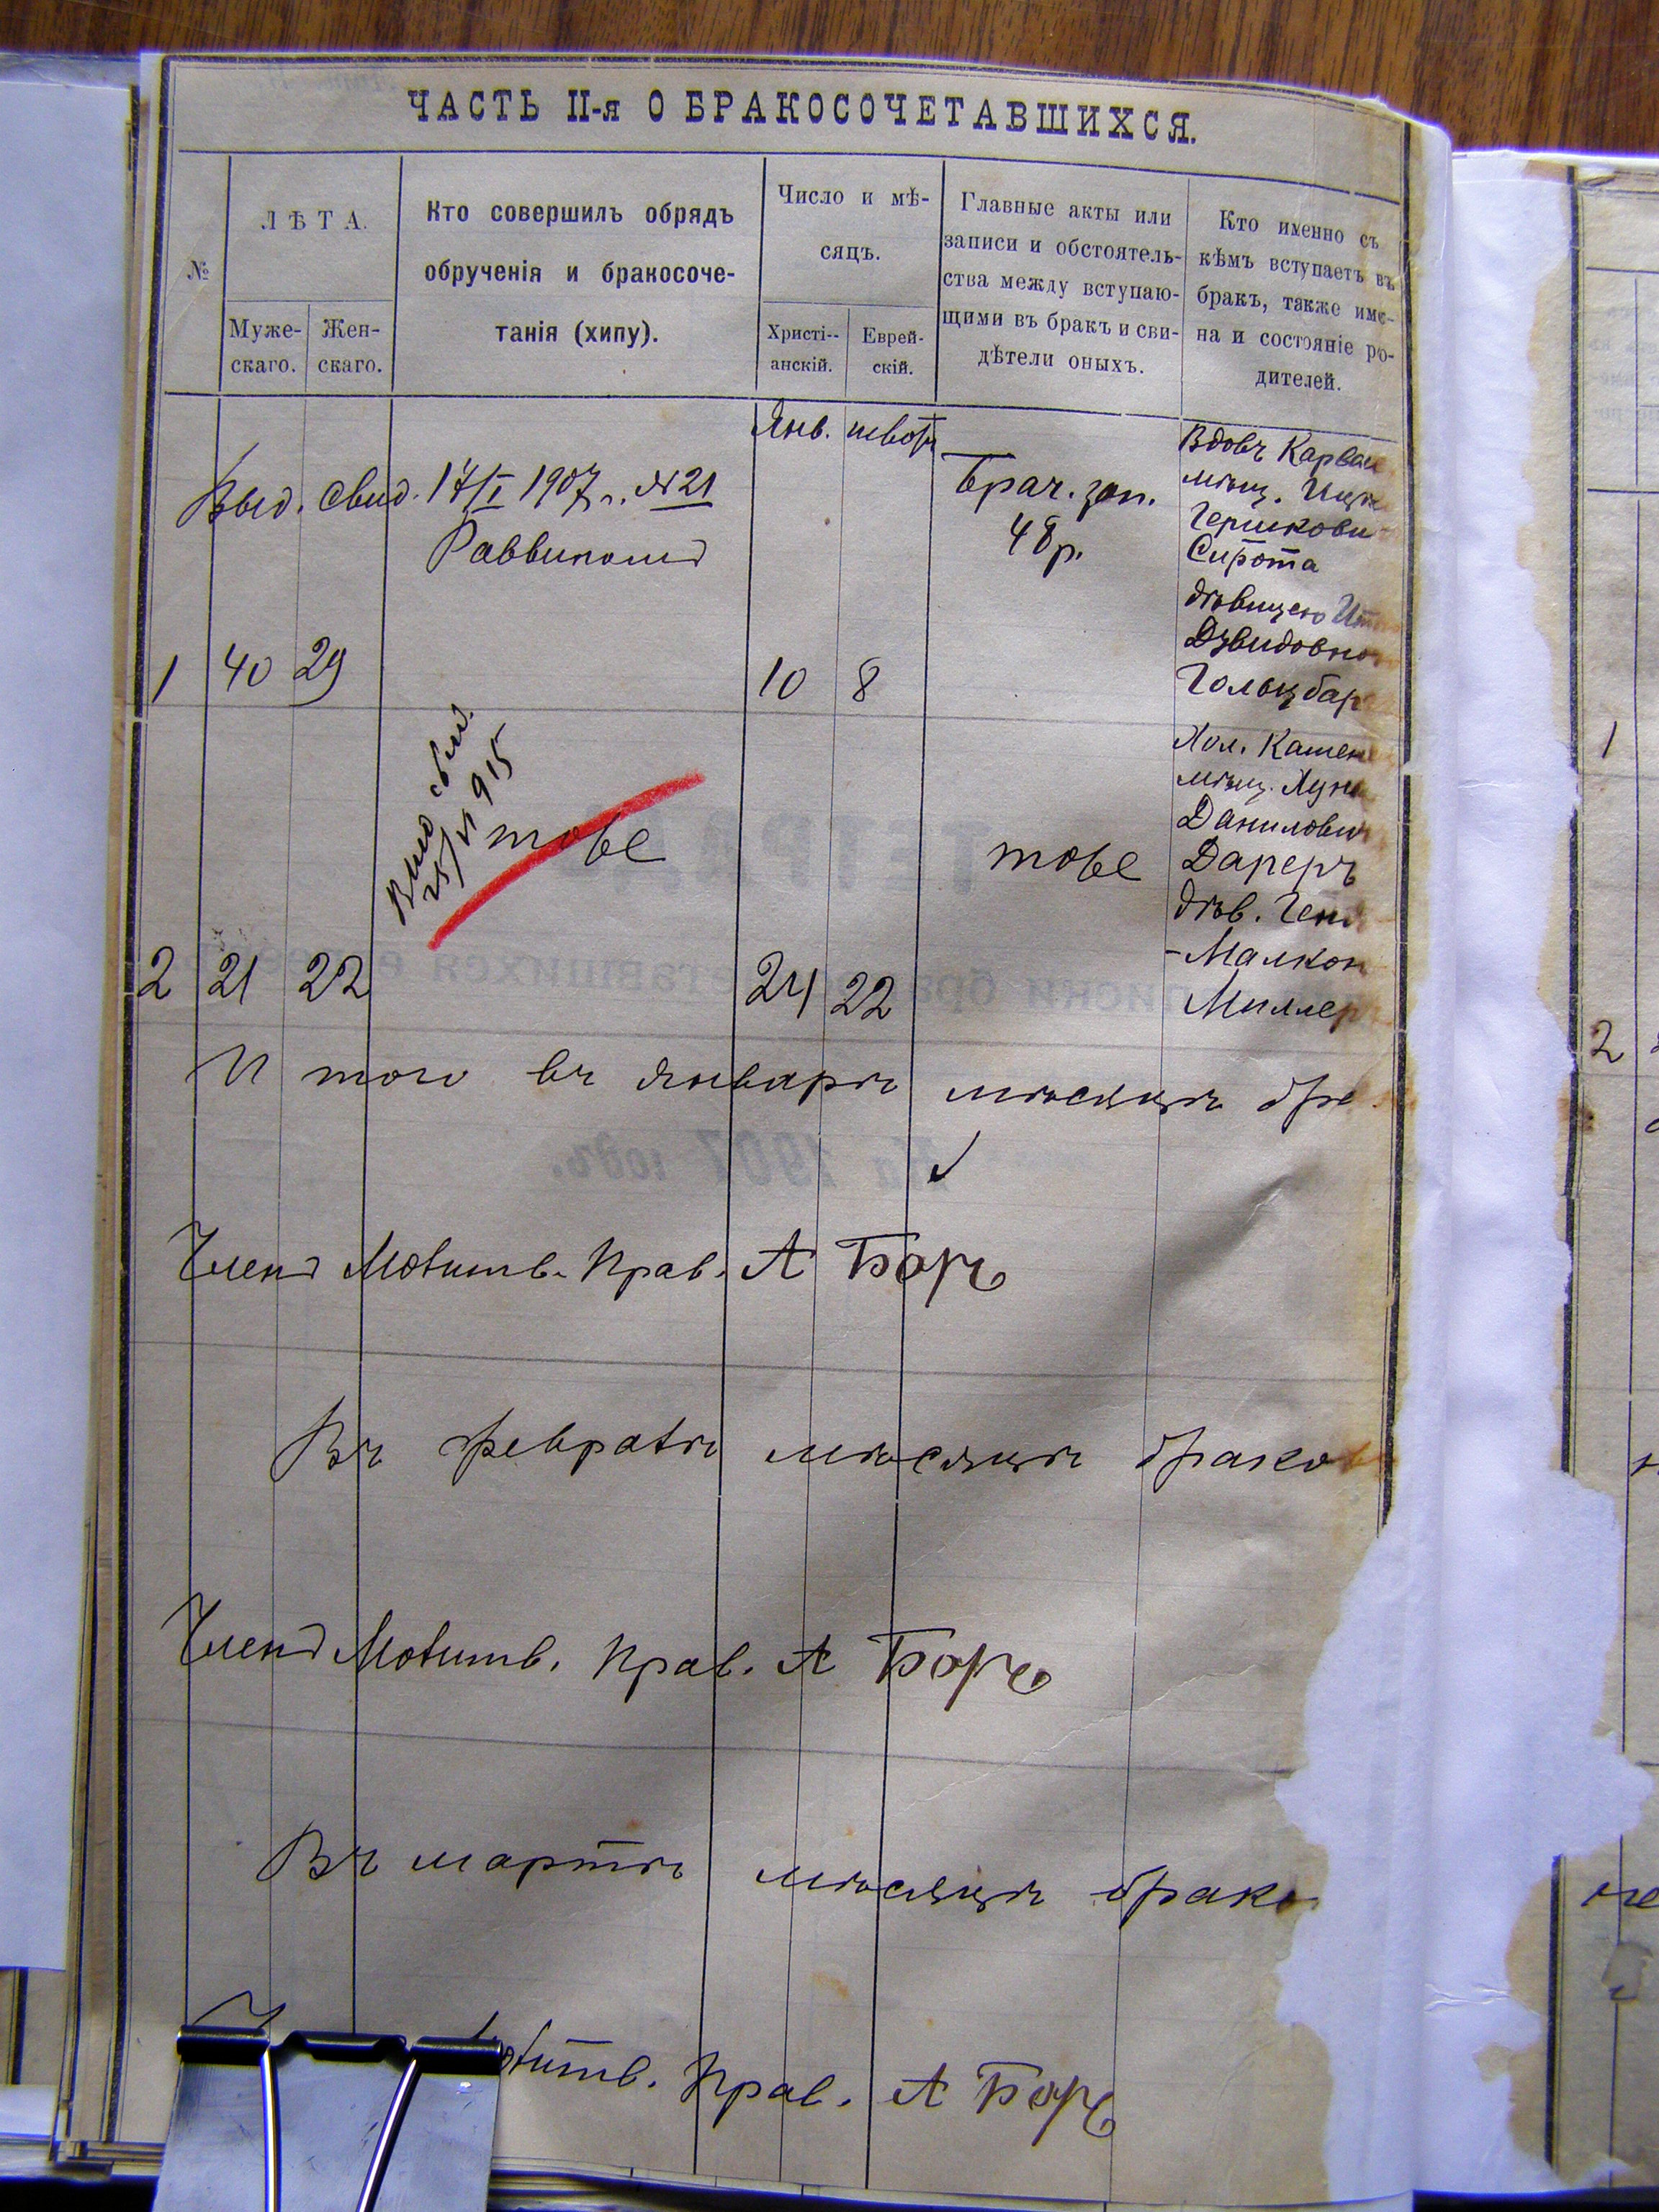 ЧАСТЬ II-я О БРАКОСОЧЕТАВШИХСЯ.
№
ЛѢТА.
Муже-
скаго.
Жен-
скаго.
Кто совершилъ обрядъ
обрученія и бракосоче-
танія (хипу).
Число и мѣ-
сяцъ.
Христі--
анскій.
Еврей-
скій.
Главные акты или
записи и обстоятель-
ства между вступаю-
щими въ бракъ и сви-
дѣтели оныхъ.
Кто именно съ
кѣмъ вступаетъ въ
бракъ, также име-
на и состояніе ро-
дителей.
Янв. шватъ
Выд. свид. 17/I 1907 г. №21
Раввиномъ
Брач. зап.
48 р.
Вдовъ
мѣщ.
Гершкови
Сирота
дѣвицею
Давидовно
1 40 29 10 8
Выд свид.
25/VI 915
тоже
тоже
Хол. Камен
мѣщ.
Данилович
Дареръ
дѣв.
-Малкой
Миллеръ
2 21 22 24 22
Итого въ январѣ мѣсяцѣ бра
Членъ Молитв. Прав. А Боръ
Въ февралѣ мѣсяцѣ браков
Членъ Молитв. Прав. А Боръ
Въ мартѣ мѣсяцѣ брако
олитв. Прав. А Боръ
1
2